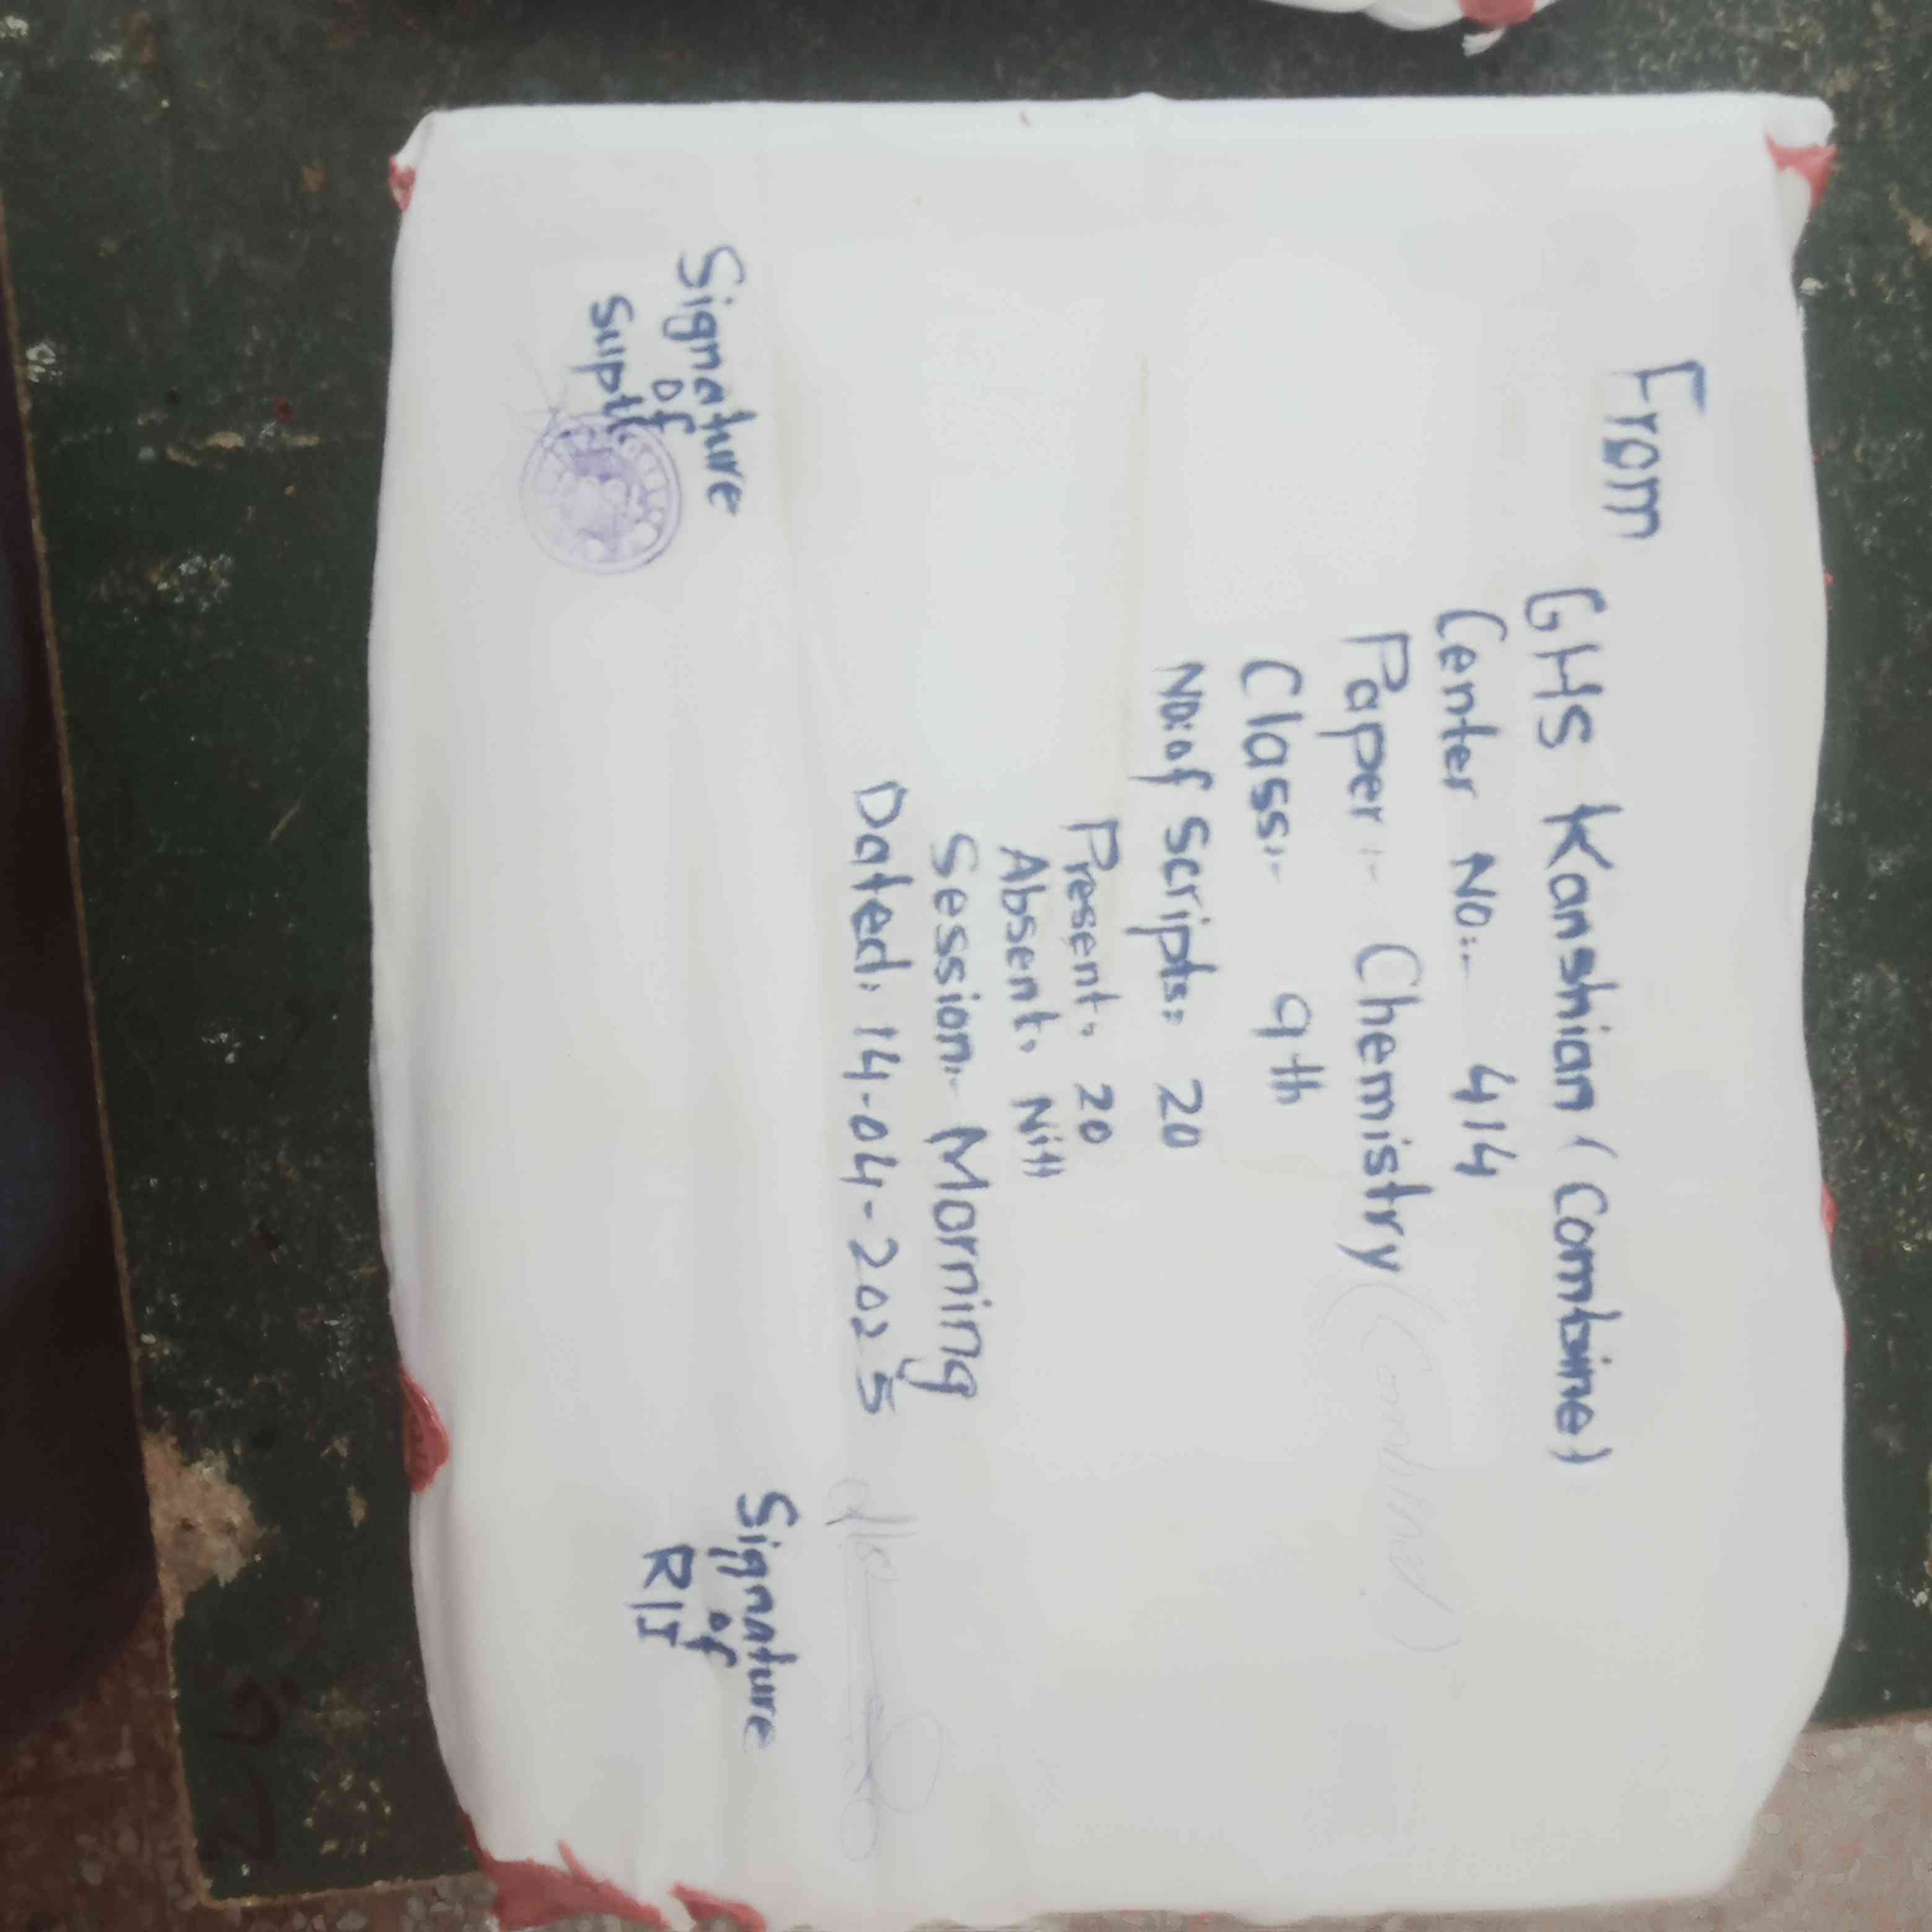 From
GHS Kanshian (Combine)
Center No:- 414
Paper :- Chemistry (Combined)
Class:- 9th
No: of Scripts: 20
Present: 20
Absent: Nill
Session:- Morning
Dated: 14-04-2025
Signature
of
Suptt
Signature
of
R/I